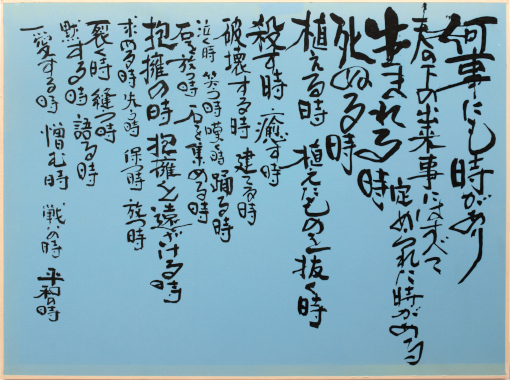 何事にも時があり
天の下の出来事にはすべて
定められた時がある
生まれる時
死ぬる時
植える時 植えたものを抜く時
殺す時 癒す時
破壊する時 建てる時
泣く時 笑う時 嘆く時 踊る時
石を放つ時 石を集める時
抱擁の時 抱擁を遠ざける時
求める時 失う時 保つ時 放つ時
裂く時 縫う時
黙する時 語る時
愛する時 憎む時 戦いの時 平和の時